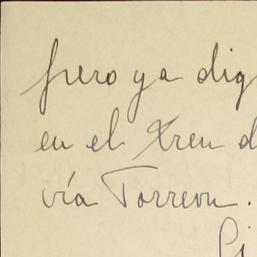 pero ya dig
en el Xren d
vía Torreon.
Li